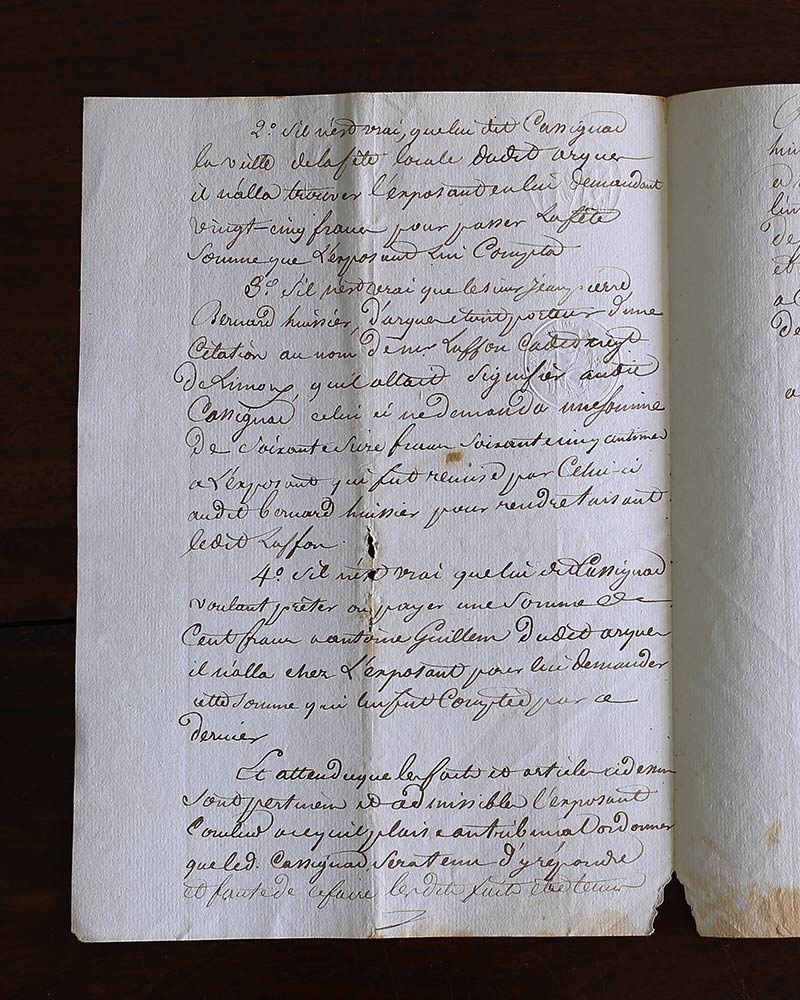 2.° s'il n'est vrai, que lui dit Cassignac
la veille de la fête locale dudit arques
il n'alla trouver l'exposant en lui demandant
vingt-cinq francs pour passer la fête
somme que L'exposant Lui Compta
3.° s'il n'est vrai que le sieur jean pierre
Bernard huissier, d'arques étant porteur d'une
Citation au nom de mr. Laffon
de Limoux, qu'il allait signifier audit
Cassignac celui ci ne demanda une somme
de soixante seize francs soixante cinq centimes
a L'exposant qui fut remise par Celui-ci
audit bernard huissier pour rendre taisant
ledit Laffon.
4.° s'il n'est vrai que lui dit Cassignac
voulant prêter ou payer une somme de
Cent francs a antoine Guillem dudit arques
il n'alla chez L'exposant pour lui demander
cette somme qui lui fut Comptée par ce
dernier
Et attendu que les faits et articles ci dessus
sont pertinens et admissibles l'exposant
Conclud a ce qu'il plaise au tribunal ordonner
que led. Cassignac sera tenu d'y répondre
et faute de ce faire lesdits faits être tenus